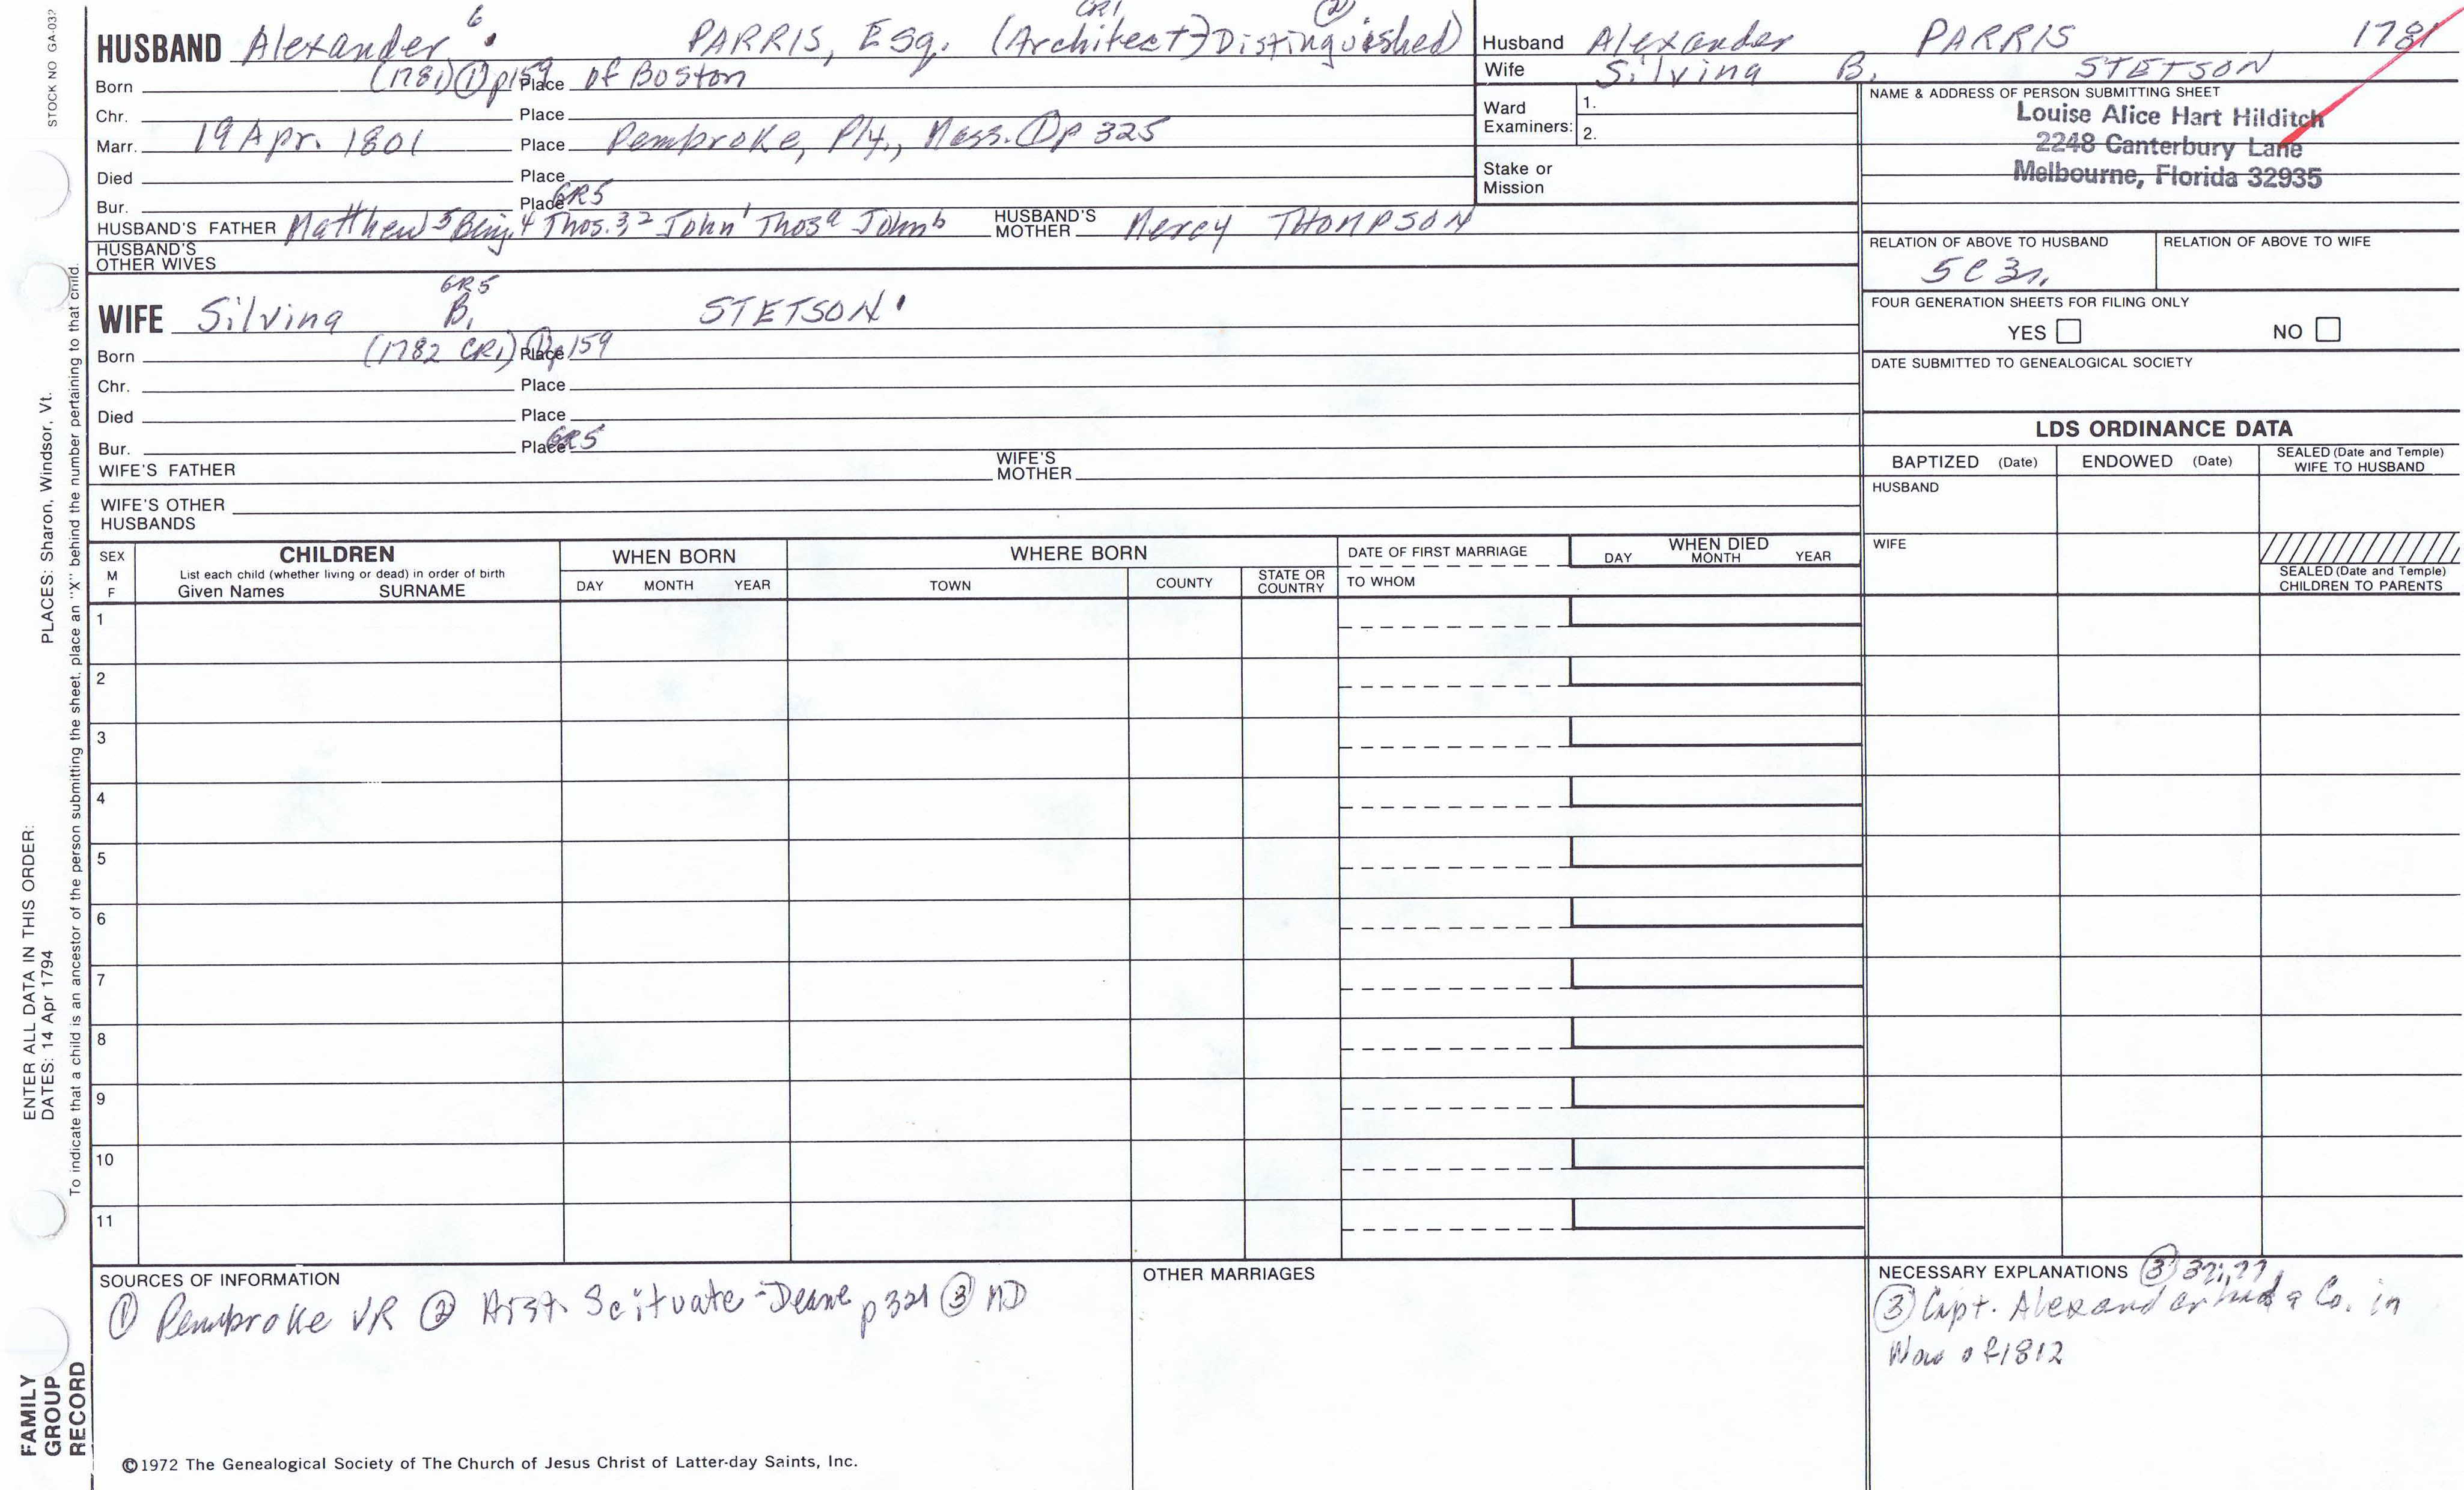 STOCK NO GA-032
PLACES: Sharon, Windsor, Vt.
ENTER ALL DATA IN THIS ORDER:
DATES: 14 Apr 1794
To indicate that a child is an ancestor of the person submitting the sheet, place an "X" behind the number pertaining to that child.
FAMILY
GROUP
RECORD
HUSBAND Alexander 6 PARRIS, Esq. (Architect) CR1 Distinguished) ②
Born (1781) ① p159 Place of Boston
Chr. Place
Marr. 19 Apr. 1801 Place Pembroke, Ply., Mass. ① p 325
Died Place
Bur. Place GR5
HUSBAND'S FATHER Matthew 5 Benj. 4 Thos. 3 2 John 1 Thos a John b HUSBAND'S MOTHER Mercy THOMPSON
HUSBAND'S OTHER WIVES
WIFE Silvina B. GR5 STETSON
Born (1782 CR1) ① p159 Place
Chr. Place
Died Place
Bur. Place GR5
WIFE'S FATHER WIFE'S MOTHER
WIFE'S OTHER HUSBANDS
Husband Alexander PARRIS 1781
Wife Silvina B. STETSON
Ward Examiners: 1.
2.
Stake or Mission
NAME & ADDRESS OF PERSON SUBMITTING SHEET
Louise Alice Hart Hilditch
2248 Canterbury Lane
Melbourne, Florida 32935
RELATION OF ABOVE TO HUSBAND RELATION OF ABOVE TO WIFE
5C 3r.
FOUR GENERATION SHEETS FOR FILING ONLY
YES NO
DATE SUBMITTED TO GENEALOGICAL SOCIETY
LDS ORDINANCE DATA
BAPTIZED (Date) ENDOWED (Date) SEALED (Date and Temple) WIFE TO HUSBAND
HUSBAND
WIFE
SEALED (Date and Temple) CHILDREN TO PARENTS
SEX M F CHILDREN WHEN BORN WHERE BORN DATE OF FIRST MARRIAGE WHEN DIED
List each child (whether living or dead) in order of birth
Given Names SURNAME DAY MONTH YEAR TOWN COUNTY STATE OR COUNTRY TO WHOM DAY MONTH YEAR
1
2
3
4
5
6
7
8
9
10
11
SOURCES OF INFORMATION
① Pembroke VR ② Hist. Scituate - Deane p321 ③ MD
OTHER MARRIAGES
NECESSARY EXPLANATIONS ③
③ Capt. Alexander had a Co. in
War of 1812
©1972 The Genealogical Society of The Church of Jesus Christ of Latter-day Saints, Inc.